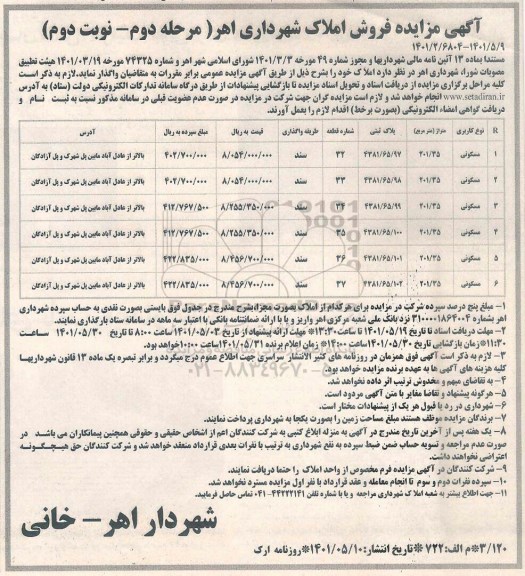 آگهی مزایده فروش املاک شهرداری اهر( مرحله دوم- نوبت دوم)
۱۴۰۱/۲/۶۸۰۴-۱۴۰۱/۵/۹
مستندا بماده ۱۳ آئین نامه مالی شهرداریها و مجوز شماره ۴۹ مورخه ۱۴۰۱/۳/۳ شورای اسلامی شهر اهر و شماره ۷۴۳۲۵ مورخه ۱۴۰۱/۰۳/۱۹ هیئت تطبیق
مصوبات شورا، شهرداری اهر در نظر دارد املاک خود را بشرح ذیل از طریق آگهی مزایده عمومی برابر مقررات به متقاضیان واگذار نماید.لازم به ذکر است
کلیه مراحل برگزاری مزایده از دریافت اسناد و تحویل اسناد مزایده تا بازگشایی پیشنهادات از طریق درگاه سامانه تدارکات الکترونیکی دولت (ستاد) به آدرس
www.setadiran.ir انجام خواهد شد و لازم است مزایده گران جهت شرکت در مزایده در صورت عدم عضویت قبلی در سامانه مذکور نسبت به ثبت نام و
دریافت گواهی امضاء الکترونیکی (بصورت برخط) اقدام لازم را بعمل آورند.
R نوع کاربری متراژ (متر مربع) پلاک ثبتی شماره قطعه طریقه واگذاری قیمت به ریال مبلغ سپرده به ریال آدرس
۱ مسکونی ۲۰۱/۳۵ ۴۳۸۱/۶۵/۹۷ ۳۲ سند ۸/۰۵۴/۰۰۰/۰۰۰ ۴۰۲/۷۰۰/۰۰۰ بالاتر از عادل آباد مابین پل شهرک و پل آزادگان
۲ مسکونی ۲۰۱/۳۵ ۴۳۸۱/۶۵/۹۸ ۳۳ سند ۸/۰۵۴/۰۰۰/۰۰۰ ۴۰۲/۷۰۰/۰۰۰ بالاتر از عادل آباد مابین پل شهرک و پل آزادگان
۳ مسکونی ۲۰۱/۳۵ ۴۳۸۱/۶۵/۹۹ ۳۴ سند ۸/۲۵۵/۳۵۰/۰۰۰ ۴۱۲/۷۶۷/۵۰۰ بالاتر از عادل آباد مابین پل شهرک و پل آزادگان
۴ مسکونی ۲۰۱/۳۵ ۴۳۸۱/۶۵/۱۰۰ ۳۵ سند ۸/۲۵۵/۳۵۰/۰۰۰ ۴۱۲/۷۶۷/۵۰۰ بالاتر از عادل آباد مابین پل شهرک و پل آزادگان
۵ مسکونی ۲۰۱/۳۵ ۴۳۸۱/۶۵/۱۰۱ ۳۶ سند ۸/۴۵۶/۷۰۰/۰۰۰ ۴۲۲/۸۳۵/۰۰۰ بالاتر از عادل آباد مابین پل شهرک و پل آزادگان
۶ مسکونی ۲۰۱/۳۵ ۴۳۸۱/۶۵/۱۰۲ ۳۷ سند ۸/۴۵۶/۷۰۰/۰۰۰ ۴۲۲/۸۳۵/۰۰۰ بالاتر از عادل آباد مابین پل شهرک و پل آزادگان
۱- مبلغ پنج درصد سپرده شرکت در مزایده برای هرکدام از املاک بصورت مجزا،بشرح مندرج در جدول فوق بایستی بصورت نقدی به حساب سپرده شهرداری
اهر بشماره ۳۱۰۰۰۰۱۸۶۴۰۰۴ نزد بانک ملی شعبه مرکزی اهر واریز و یا با ارائه ضمانتنامه بانکی با اعتبار سه ماهه در سامانه ستاد بارگذاری نمایند.
۲- مهلت دریافت اسناد تا تاریخ ۱۴۰۱/۰۵/۱۹ تا ساعت ۱۳:۳۰* مهلت ارائه پیشنهاد از تاریخ ۱۴۰۱/۰۵/۰۳ از ساعت ۸:۰۰ تا تاریخ ۱۴۰۱/۰۵/۳۰ ساعت
۱۱:۳۰* زمان بازگشایی تاریخ ۱۴۰۱/۰۵/۳۰ ساعت ۱۴:۰۰* زمان اعلام برنده ۱۴۰۱/۰۵/۳۱ ساعت ۱۰:۰۰ خواهد بود.
۳- لازم به ذکر است آگهی فوق همزمان در روزنامه های کثیر الانتشار سراسری جهت اطلاع عموم درج میگردد و برابر تبصره یک ماده ۱۳ قانون شهرداریها
کلیه هزینه های آگهی ها به عهده برنده مزایده خواهد بود.
۴- به تقاضای مبهم و مخدوش ترتیب اثر داده نخواهد شد.
۵- هرگونه پیشنهاد و تقاضا مغایر با متن آگهی مردود است.
۶- شهرداری در رد یا قبول هر یک از پیشنهادات مختار است.
۷- برندگان مزایده موظف هستند مبلغ مساحت زمین را بصورت یکجا به شهرداری پرداخت نمایند.
۸- یک هفته پس از آخرین تاریخ مندرج در آگهی به منزله ابلاغ کتبی به شرکت کنندگان اعم از اشخاص حقیقی و حقوقی همچنین پیمانکاران می باشد در
صورت عدم مراجعه و تسویه حساب ضمن ضبط سپرده به نفع شهرداری به ترتیب با نفرات بعدی قرارداد منعقد خواهد شد و شرکت کنندگان حق هیچگونه
اعتراضی نخواهند داشت.
۹- شرکت کنندگان در آگهی مزایده فرم مخصوص از واحد املاک را حتما دریافت نمایند.
۱۰- سپرده نفرات دوم و سوم تا انجام معامله و عقد قرارداد با نفر اول مزایده مسترد نخواهد شد.
۱۱- جهت اطلاع بیشتر به شعبه املاک شهرداری مراجعه و یا با شماره تلفن ۴۴۲۲۲۱۴۱-۰۴۱ تماس حاصل فرمایید.
شهردار اهر- خانی
۳/۱۲۰*م الف:۷۲۲ *تاریخ انتشار:۱۴۰۱/۰۵/۱۰*روزنامه ارک
۰۲۱-۸۸۳۴۹۶۷۰